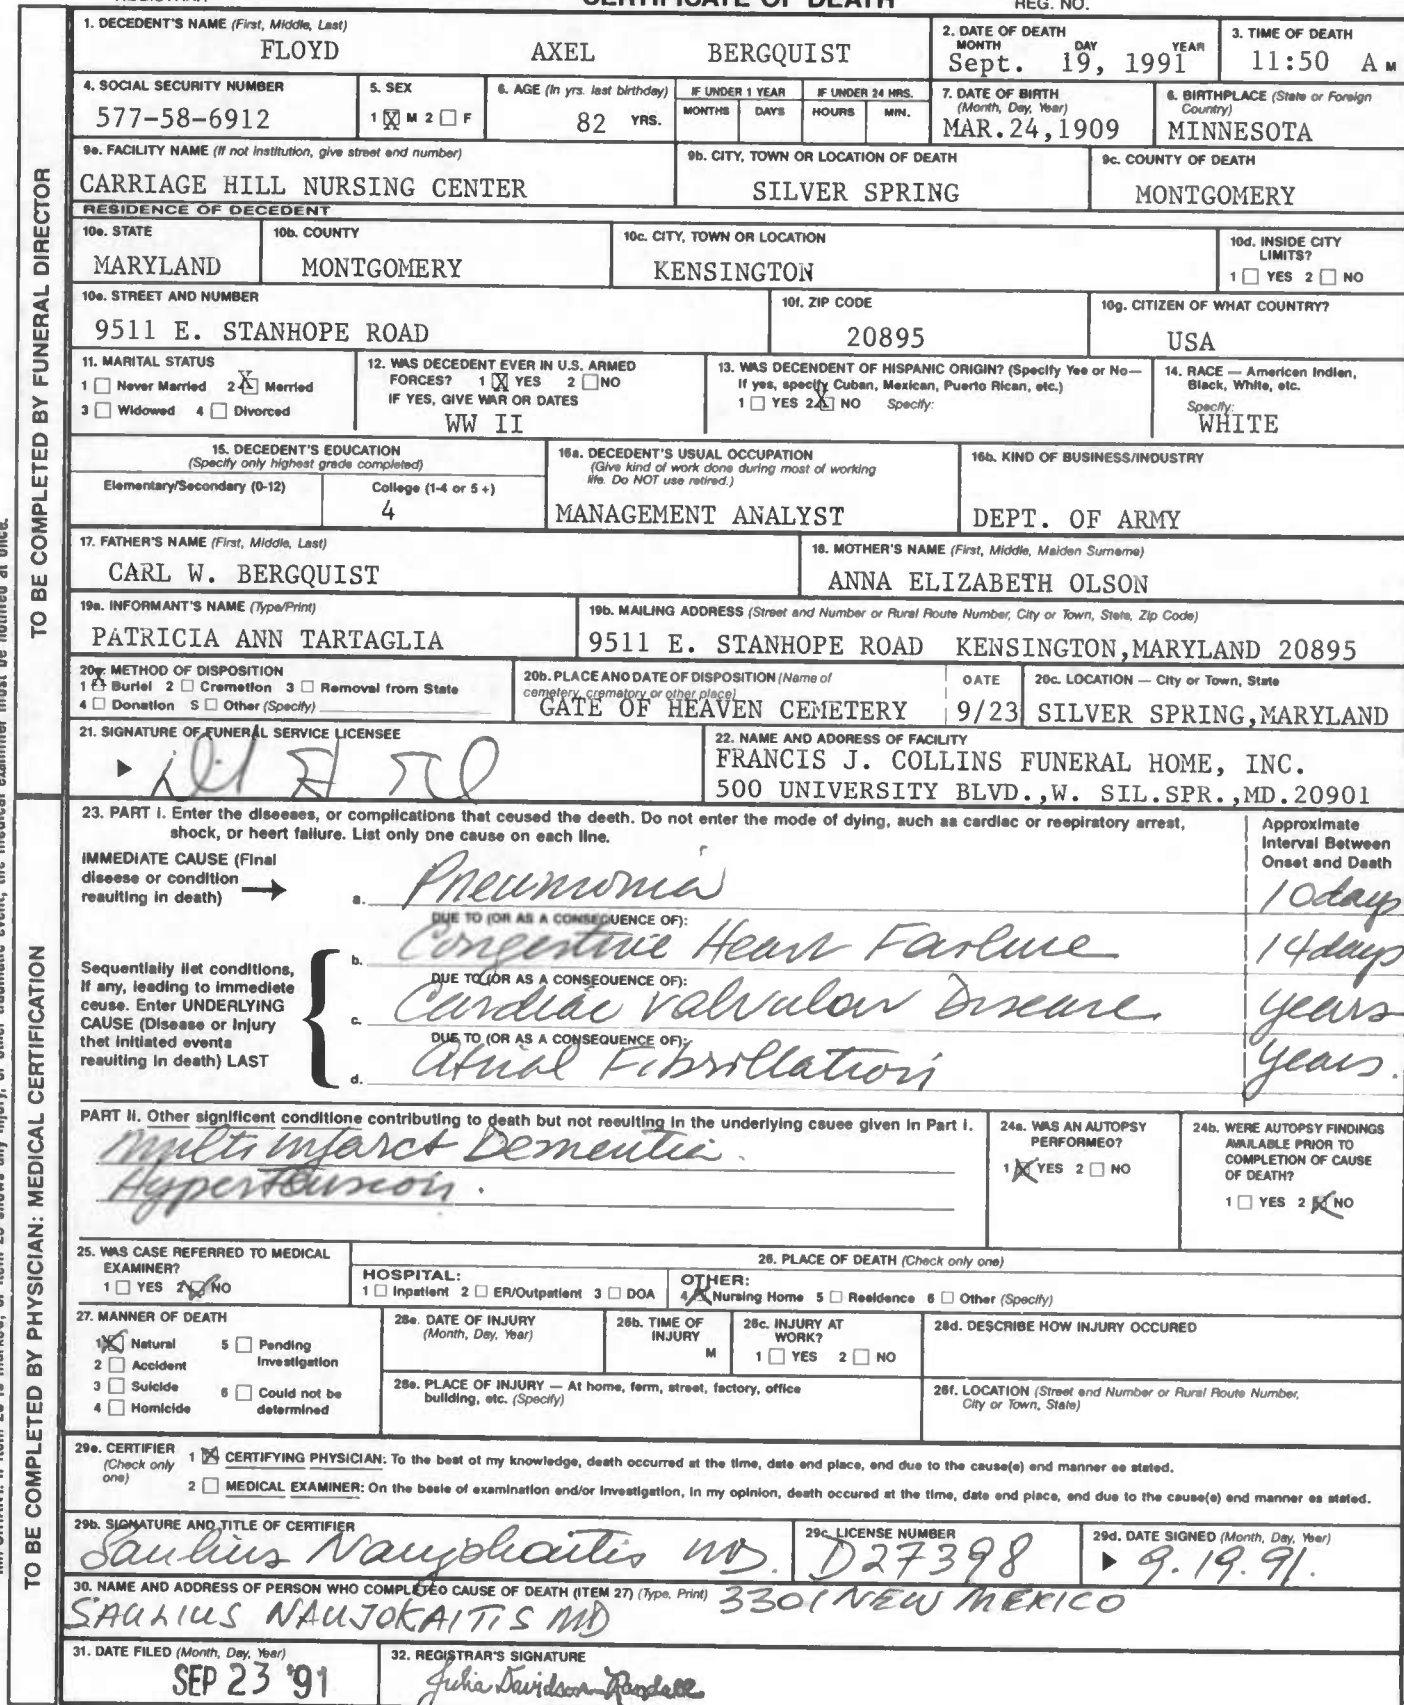 CERTIFICATE OF DEATH REG. NO.
1. DECEDENT'S NAME (First, Middle, Last)
FLOYD AXEL BERGQUIST
2. DATE OF DEATH
MONTH DAY YEAR
Sept. 19, 1991
3. TIME OF DEATH
11:50 A M
4. SOCIAL SECURITY NUMBER
577-58-6912
5. SEX
1 X M 2 F
6. AGE (In yrs. last birthday)
82 YRS.
IF UNDER 1 YEAR
MONTHS DAYS
IF UNDER 24 HRS.
HOURS MIN.
7. DATE OF BIRTH
(Month, Day, Year)
MAR.24,1909
8. BIRTHPLACE (State or Foreign
Country)
MINNESOTA
9a. FACILITY NAME (If not institution, give street and number)
CARRIAGE HILL NURSING CENTER
9b. CITY, TOWN OR LOCATION OF DEATH
SILVER SPRING
9c. COUNTY OF DEATH
MONTGOMERY
RESIDENCE OF DECEDENT
10a. STATE
MARYLAND
10b. COUNTY
MONTGOMERY
10c. CITY, TOWN OR LOCATION
KENSINGTON
10d. INSIDE CITY
LIMITS?
1 YES 2 NO
10e. STREET AND NUMBER
9511 E. STANHOPE ROAD
10f. ZIP CODE
20895
10g. CITIZEN OF WHAT COUNTRY?
USA
11. MARITAL STATUS
1 Never Married 2 X Married
3 Widowed 4 Divorced
12. WAS DECEDENT EVER IN U.S. ARMED
FORCES? 1 X YES 2 NO
IF YES, GIVE WAR OR DATES
WW II
13. WAS DECENDENT OF HISPANIC ORIGIN? (Specify Yes or No—
If yes, specify Cuban, Mexican, Puerto Rican, etc.)
1 YES 2 X NO Specify:
14. RACE — American Indian,
Black, White, etc.
Specify:
WHITE
15. DECEDENT'S EDUCATION
(Specify only highest grade completed)
Elementary/Secondary (0-12)
College (1-4 or 5+)
4
16a. DECEDENT'S USUAL OCCUPATION
(Give kind of work done during most of working
life. Do NOT use retired.)
MANAGEMENT ANALYST
16b. KIND OF BUSINESS/INDUSTRY
DEPT. OF ARMY
17. FATHER'S NAME (First, Middle, Last)
CARL W. BERGQUIST
18. MOTHER'S NAME (First, Middle, Maiden Surname)
ANNA ELIZABETH OLSON
19a. INFORMANT'S NAME (Type/Print)
PATRICIA ANN TARTAGLIA
19b. MAILING ADDRESS (Street and Number or Rural Route Number, City or Town, State, Zip Code)
9511 E. STANHOPE ROAD KENSINGTON,MARYLAND 20895
20a. METHOD OF DISPOSITION
1 X Burial 2 Cremation 3 Removal from State
4 Donation 5 Other (Specify)
20b. PLACE AND DATE OF DISPOSITION (Name of
cemetery, crematory or other place)
GATE OF HEAVEN CEMETERY
DATE
9/23
20c. LOCATION — City or Town, State
SILVER SPRING,MARYLAND
21. SIGNATURE OF FUNERAL SERVICE LICENSEE
22. NAME AND ADDRESS OF FACILITY
FRANCIS J. COLLINS FUNERAL HOME, INC.
500 UNIVERSITY BLVD.,W. SIL.SPR.,MD.20901
TO BE COMPLETED BY FUNERAL DIRECTOR
23. PART I. Enter the diseases, or complications that caused the death. Do not enter the mode of dying, such as cardiac or respiratory arrest,
shock, or heart failure. List only one cause on each line.
Approximate
Interval Between
Onset and Death
IMMEDIATE CAUSE (Final
disease or condition
resulting in death)
a. Pneumonia 10 days
DUE TO (OR AS A CONSEQUENCE OF):
b. Congestive Heart Failure 14 days
DUE TO (OR AS A CONSEQUENCE OF):
c. Cardiac Valvular Disease years
DUE TO (OR AS A CONSEQUENCE OF):
d. Atrial Fibrillation years.
Sequentially list conditions,
if any, leading to immediate
cause. Enter UNDERLYING
CAUSE (Disease or injury
that initiated events
resulting in death) LAST
PART II. Other significant conditions contributing to death but not resulting in the underlying cause given in Part I.
Multi infarct Dementia.
Hypertension.
24a. WAS AN AUTOPSY
PERFORMED?
1 X YES 2 NO
24b. WERE AUTOPSY FINDINGS
AVAILABLE PRIOR TO
COMPLETION OF CAUSE
OF DEATH?
1 YES 2 X NO
25. WAS CASE REFERRED TO MEDICAL
EXAMINER?
1 YES 2 X NO
26. PLACE OF DEATH (Check only one)
HOSPITAL:
1 Inpatient 2 ER/Outpatient 3 DOA
OTHER:
4 X Nursing Home 5 Residence 6 Other (Specify)
27. MANNER OF DEATH
1 X Natural 5 Pending
Investigation
2 Accident
3 Suicide 6 Could not be
determined
4 Homicide
28a. DATE OF INJURY
(Month, Day, Year)
28b. TIME OF
INJURY
M
28c. INJURY AT
WORK?
1 YES 2 NO
28d. DESCRIBE HOW INJURY OCCURED
28e. PLACE OF INJURY — At home, farm, street, factory, office
building, etc. (Specify)
28f. LOCATION (Street and Number or Rural Route Number,
City or Town, State)
29a. CERTIFIER
(Check only
one)
1 X CERTIFYING PHYSICIAN: To the best of my knowledge, death occurred at the time, date and place, and due to the cause(s) and manner as stated.
2 MEDICAL EXAMINER: On the basis of examination and/or investigation, in my opinion, death occured at the time, date and place, and due to the cause(s) and manner as stated.
29b. SIGNATURE AND TITLE OF CERTIFIER
Saulius Naujokaitis MD.
29c. LICENSE NUMBER
D27398
29d. DATE SIGNED (Month, Day, Year)
9.19.91.
30. NAME AND ADDRESS OF PERSON WHO COMPLETED CAUSE OF DEATH (ITEM 27) (Type, Print)
SAULIUS NAUJOKAITIS MD 3301 NEW MEXICO
31. DATE FILED (Month, Day, Year)
SEP 23 '91
32. REGISTRAR'S SIGNATURE
Julia Davidson-Randall
TO BE COMPLETED BY PHYSICIAN: MEDICAL CERTIFICATION